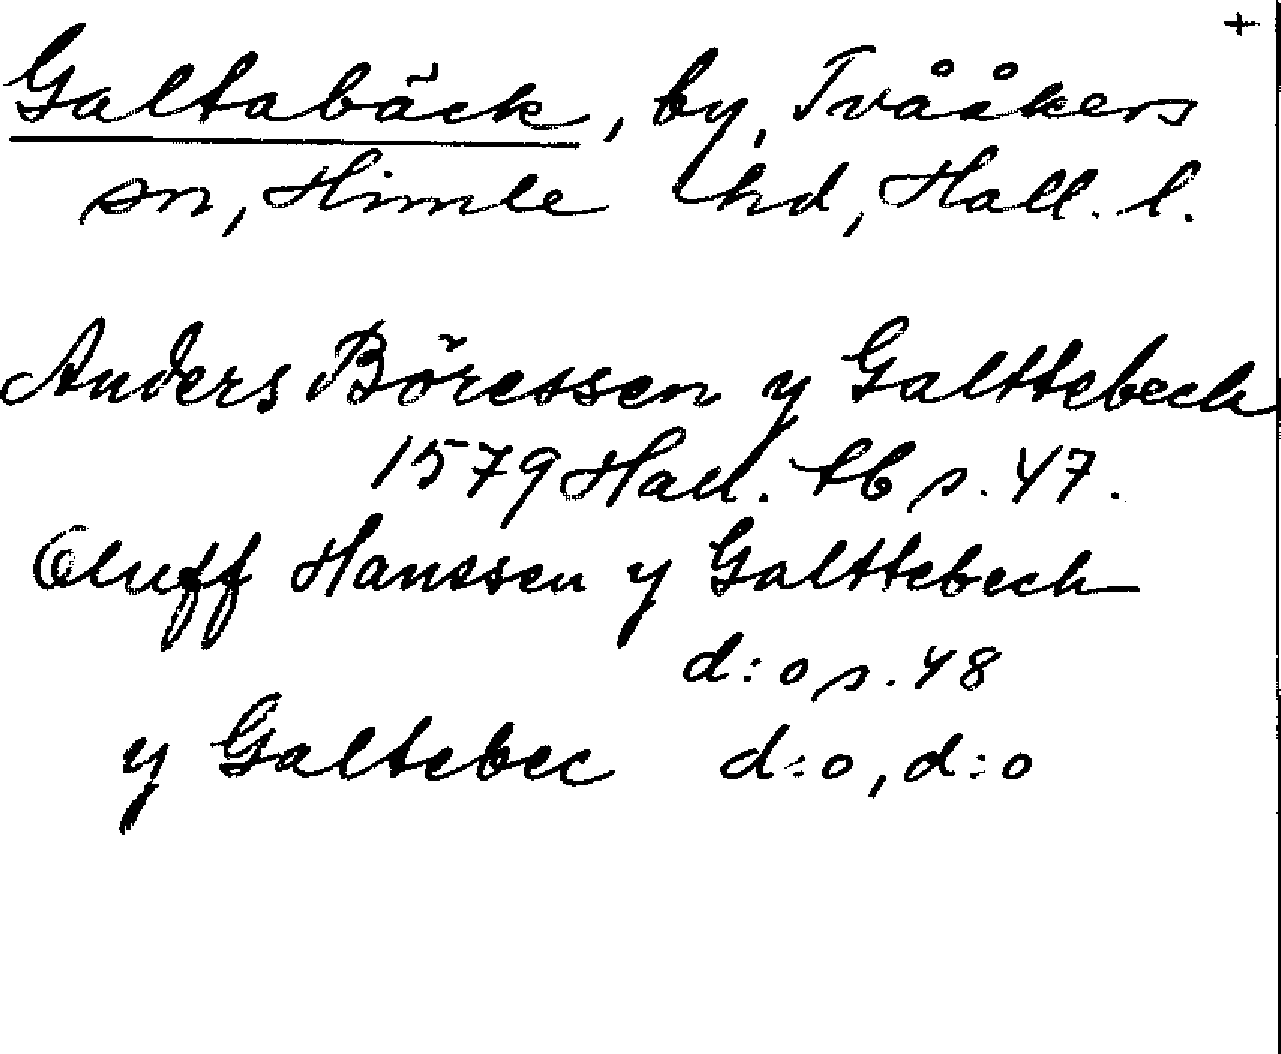 +
Galtabäck, by, Tvååkers
sn, Himle hd, Hall. l.
Anders Böressen y Galttebeck
1579 Hall. tb s. 47.
Oluff Hanssen y Galttebeck
d:o s. 48
y Galtebec d:o, d:o